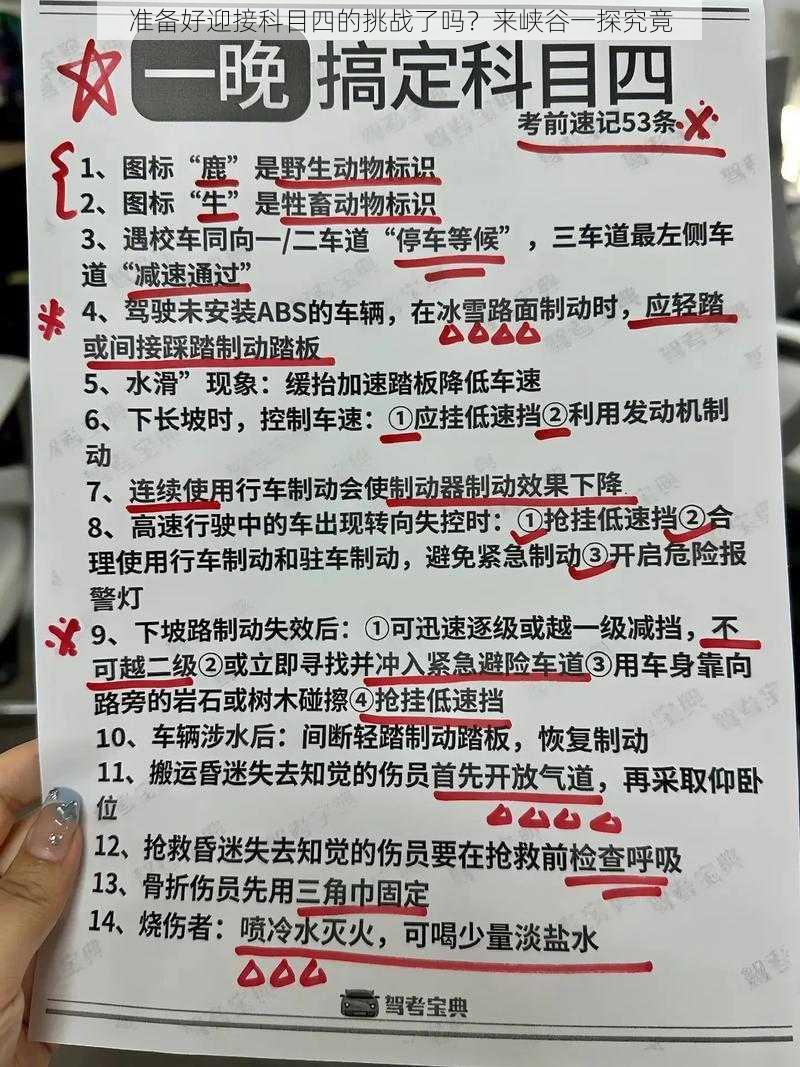 准备好迎接科目四的挑战了吗？来峡谷一探究竟
一晚搞定科目四
考前速记53条
1、图标“鹿”是野生动物标识
2、图标“牛”是牲畜动物标识
3、遇校车同向一/二车道“停车等候”，三车道最左侧车
道“减速通过”
4、驾驶未安装ABS的车辆，在冰雪路面制动时，应轻踏
或间接踩踏制动踏板
5、水滑”现象：缓抬加速踏板降低车速
6、下长坡时，控制车速：①应挂低速挡②利用发动机制
动
7、连续使用行车制动会使制动器制动效果下降
8、高速行驶中的车出现转向失控时：①抢挂低速挡②合
理使用行车制动和驻车制动，避免紧急制动③开启危险报
警灯
9、下坡路制动失效后：①可迅速逐级或越一级减挡，不
可越二级②或立即寻找并冲入紧急避险车道③用车身靠向
路旁的岩石或树木碰擦④抢挂低速挡
10、车辆涉水后：间断轻踏制动踏板，恢复制动
11、搬运昏迷失去知觉的伤员首先开放气道，再采取仰卧
位
12、抢救昏迷失去知觉的伤员要在抢救前检查呼吸
13、骨折伤员先用三角巾固定
14、烧伤者：喷冷水灭火，可喝少量淡盐水
驾考宝典